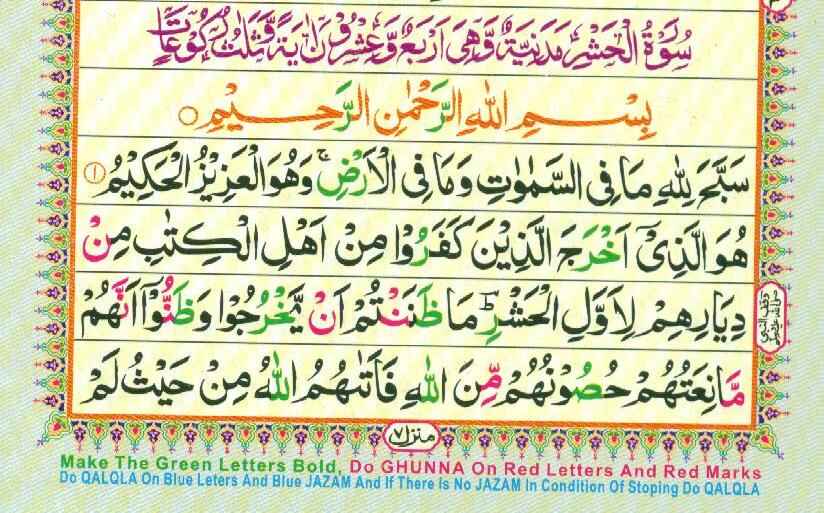 سُوْرَةُ الْحَشْرِ مَدَنِيَّةٌ وَّهِىَ اَرْبَعٌ وَّعِشْرُوْنَ اٰيَةً وَّثَلٰثُ رُكُوْعَاتٍ
بِسْمِ اللهِ الرَّحْمٰنِ الرَّحِيْمِ ○
سَبَّحَ لِلّٰهِ مَا فِى السَّمٰوٰتِ وَمَا فِى الْاَرْضِ ۚ وَهُوَ الْعَزِيْزُ الْحَكِيْمُ ۝۱
هُوَ الَّذِىْٓ اَخْرَجَ الَّذِيْنَ كَفَرُوْا مِنْ اَهْلِ الْكِتٰبِ مِنْ
دِيَارِهِمْ لِاَوَّلِ الْحَشْرِ ؕ مَا ظَنَنْتُمْ اَنْ يَّخْرُجُوْا وَظَنُّوْٓا اَنَّهُمْ
مَّانِعَتُهُمْ حُصُوْنُهُمْ مِّنَ اللّٰهِ فَاَتٰىهُمُ اللّٰهُ مِنْ حَيْثُ لَمْ
منزل ۷
Make The Green Letters Bold, Do GHUNNA On Red Letters And Red Marks
Do QALQLA On Blue Leters And Blue JAZAM And If There Is No JAZAM In Condition Of Stoping Do QALQLA